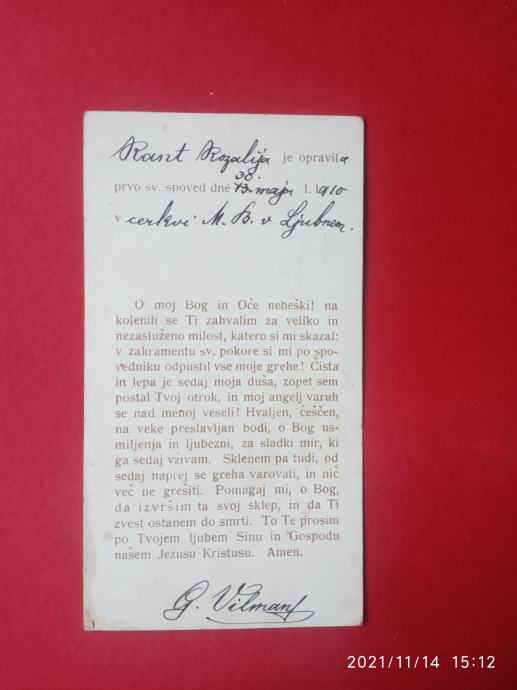 Rant Rozalija je opravila
30.
prvo sv. spoved dné 13. maja l. 1910
v cerkvi M. B. v Ljubnem.
O moj Bog in Oče nebeški! na
kolenih se Ti zahvalim za veliko in
nezasluženo milost, katero si mi skazal:
v zakramentu sv. pokore si mi po spo-
vedniku odpustil vse moje grehe! Čista
in lepa je sedaj moja duša, zopet sem
postal Tvoj otrok, in moj angelj varuh
se nad menoj veseli! Hvaljen, češčen,
na veke preslavljan bodi, o Bog us-
miljenja in ljubezni, za sladki mir, ki
ga sedaj vživam. Sklenem pa tudi, od
sedaj naprej se greha varovati, in nič
več ne grešiti. Pomagaj mi, o Bog,
da izvršim ta svoj sklep, in da Ti
zvest ostanem do smrti. To Te prosim
po Tvojem ljubem Sinu in Gospodu
našem Jezusu Kristusu. Amen.
G. Vilman
2021/11/14 15:12